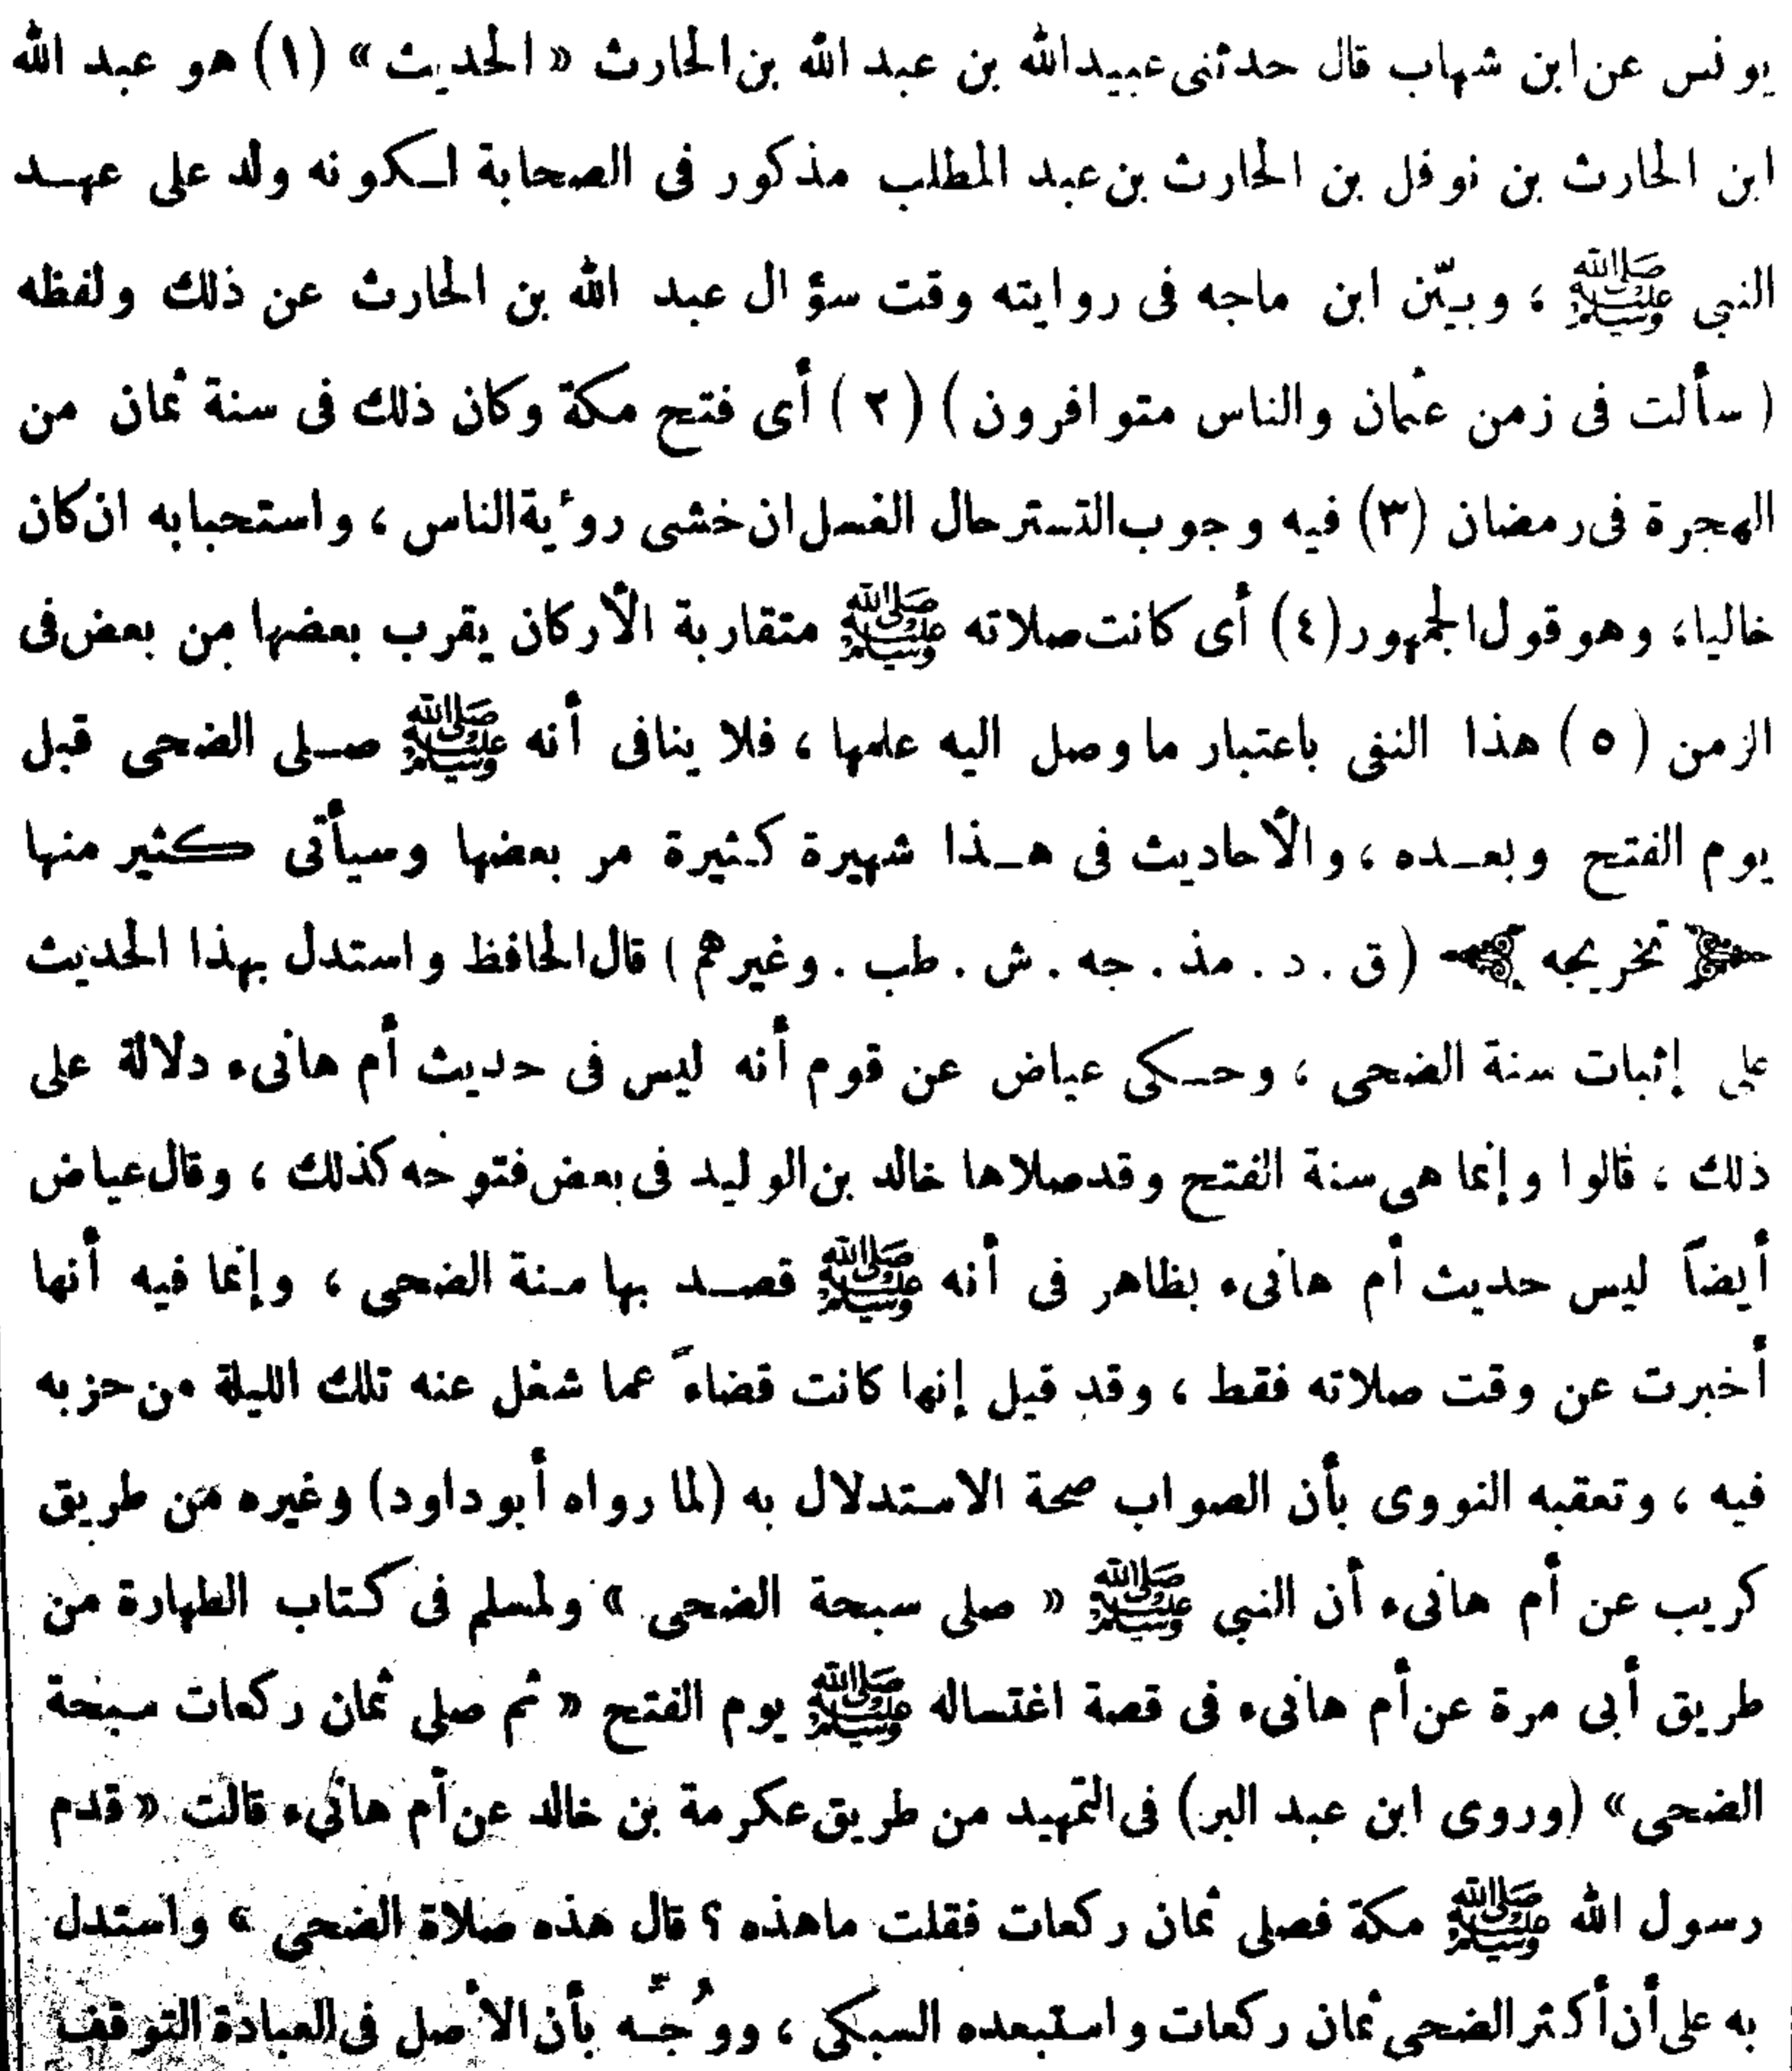 يونس عن ابن شهاب قال حدثنى عبيد الله بن عبد الله بن الحارث « الحديث » (١) هو عبد الله
ابن الحارث بن نوفل بن الحارث بن عبد المطلب مذكور فى الصحابة لـكونه ولد على عهـد
النبي ﷺ ، وبيّن ابن ماجه فى روايته وقت سؤال عبد الله بن الحارث عن ذلك ولفظه
( سألت فى زمن عثمان والناس متوافرون ) (٢) أى فتح مكة وكان ذلك فى سنة ثمان من
الهجرة فى رمضان (٣) فيه وجوب التستر حال الغسل ان خشى رؤية الناس ، واستحبابه ان كان
خاليا، وهو قول الجمهور (٤) أى كانت صلاته ﷺ متقاربة الأركان يقرب بعضها من بعض فى
الزمن (٥) هذا النفى باعتبار ما وصل اليه علمها ، فلا ينافى أنه ﷺ صـلى الضحى قبل
يوم الفتح وبعـده ، والأحاديث فى هـذا شهيرة كثيرة مر بعضها وسيأتى كثير منها
تخريجه ( ق . د . مذ . جه . ش . طب . وغيرهم ) قال الحافظ واستدل بهذا الحديث
على إثبات سنة الضحى ، وحـكى عياض عن قوم أنه ليس فى حديث أم هانىء دلالة على
ذلك ، قالوا وإنما هى سنة الفتح وقد صلاها خالد بن الوليد فى بعض فتوحه كذلك ، وقال عياض
أيضاً ليس حديث أم هانىء بظاهر فى أنه ﷺ قصـد بها سنة الضحى ، وإنما فيه أنها
أخبرت عن وقت صلاته فقط ، وقد قيل إنها كانت قضاءً عما شغل عنه تلك الليلة من حزبه
فيه ، وتعقبه النووى بأن الصواب صحة الاستدلال به (لما رواه أبو داود) وغيره من طريق
كريب عن أم هانىء أن النبي ﷺ « صلى سبحة الضحى » ولمسلم فى كتاب الطهارة من
طريق أبى مرة عن أم هانىء فى قصة اغتساله ﷺ يوم الفتح « ثم صلى ثمان ركعات سبحة
الضحى » (وروى ابن عبد البر) فى التمهيد من طريق عكرمة بن خالد عن أم هانىء قالت « قدم
رسول الله ﷺ مكة فصلى ثمان ركعات فقلت ماهذه ؟ قال هذه صلاة الضحى » واستدل
به على أن أكثر الضحى ثمان ركعات واستبعده السبكى ، ووُجّـه بأن الأصل فى العبادة التوقف